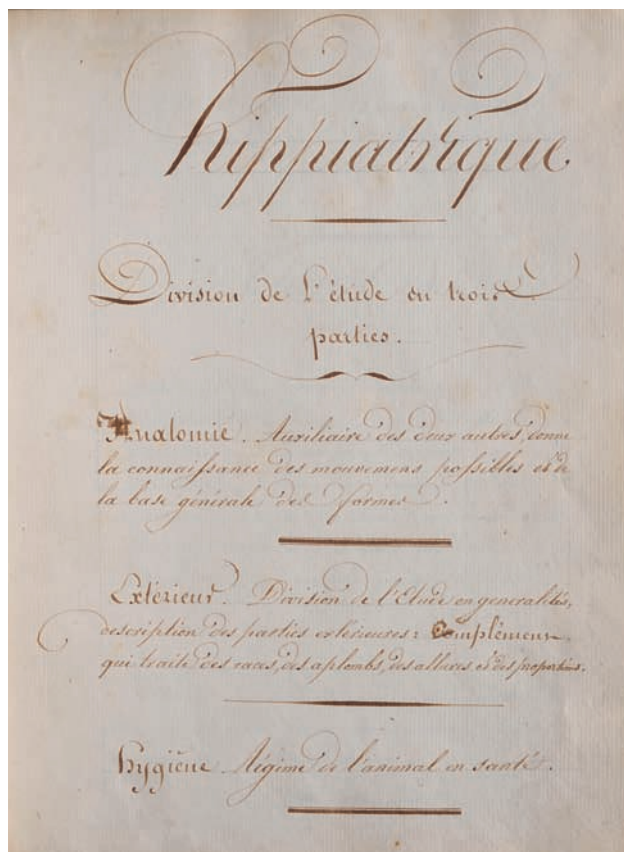 hippiatrique
Division de l'étude en trois
parties.
Anatomie. Auxiliaire des deux autres, donne
la connaissance des mouvemens possibles et de
la base générale des formes.
Extérieur. Division de l'Etude en generalités,
description des parties extérieures: Complément
qui traite des races, des aplombs, des allures et des proportions.
hygiène. Régime de l'animal en santé.